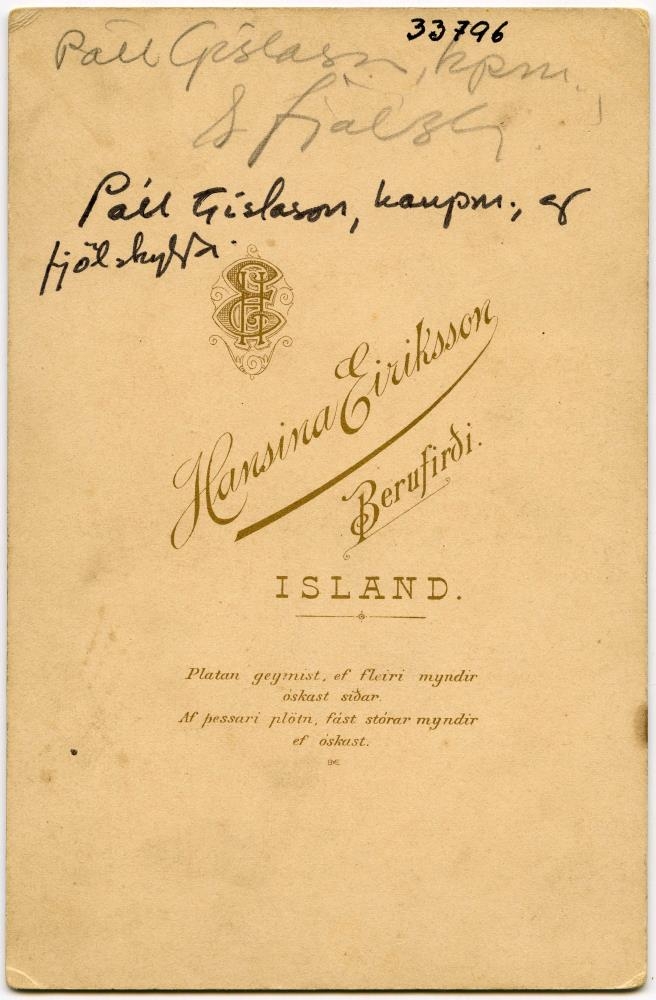 33796
Páll Gíslason, kpm.,
& fjölsk.
Páll Gíslason, kaupm., og
fjölskylda.
HE
Hansina Eiriksson
Berufirði.
ISLAND.
Platan geymist, ef fleiri myndir
óskast síðar.
Af þessari plötn, fást stórar myndir
ef óskast.